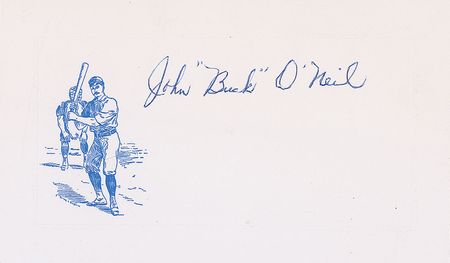 John "Buck" O'Neil